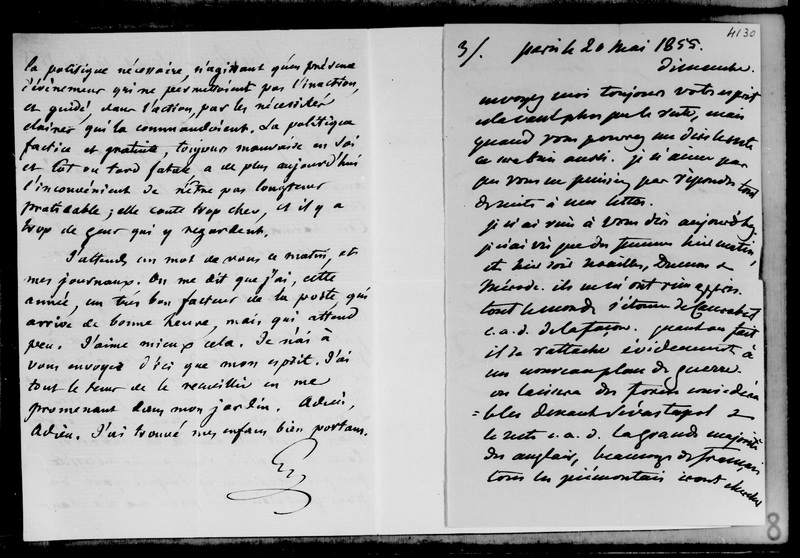 la politique nécessaire, n'agissant qu'en présence
d'évènemens qui ne permettoient pas l'inaction,
et guidée, dans l'action, par les nécessités
claires qui la commandoient. La politique
factice et gratuite, toujours mauvaise en soi
et tôt ou tard fatale a de plus aujourd'hui
l'inconvénient de n'être pas longtems
praticable ; elle coute trop cher, et il y a
trop de gens qui y regardent.
J'attends un mot de vous ce matin, et
mes journaux. On me dit que j'ai, cette
année, un très bon facteur de la poste, qui
arrive de bonne heure, mais qui attend
peu. J'aime mieux cela. Je n'ai à
vous envoyer d'ici que mon esprit. J'ai
tout le tems de le recueillir en me
promenant dans mon jardin. Adieu,
Adieu. J'ai trouvé mes enfans bien portans.
G
4130
3/. paris le 20 Mai 1855.
Dimanche.
envoyez moi toujours votre esprit
cela vaut plus que le reste, mais
quand vous pourrez me dire le reste
ce sera bien aussi. je n'aime pas
que vous ne puissiez pas répondre tout
de suite à mes lettres.
je n'ai rien à vous dire aujourd'hui.
je n'ai vu que des femmes hier matin,
et hier soir Noailles, Dumon &
Mérode. ils ne m'ont rien appris.
tout le monde s'étonne de Canrobert
c.a.d. de la façon. quant au fait
il se rattache évidemment à
un nouveau plan de guerre.
on laissera des forces considéra
=bles devant Sévastopol &
le reste c.a.d. la grande majorité
des anglais, beaucoup de français
tous les piémontais iront chercher
8